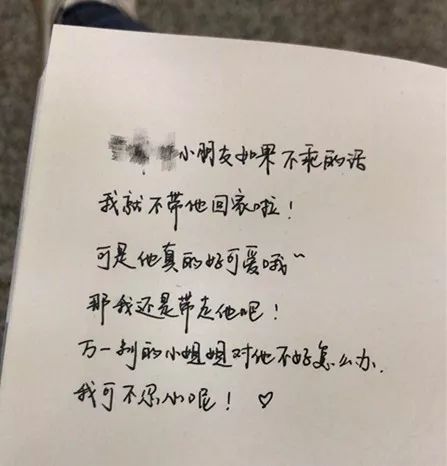 小朋友如果不乖的话
我就不带他回家啦！
可是他真的好可爱哦~
那我还是带走他吧！
万一别的小姐姐对他不好怎么办.
我可不忍心呢！♡